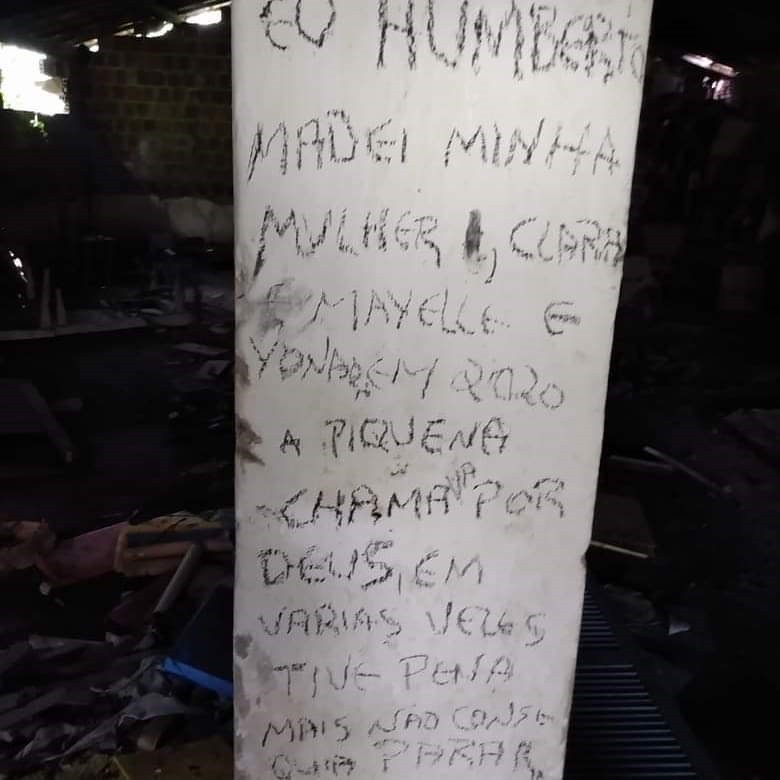 EU HUMBERTO
MADEI MINHA
MULHER, CLARA
E MAYELLE E
YONARA EM 2020
A PIQUENA
CHAMAVA POR
DEUS, EM
VARIAS VEZES
TIVE PENA
MAIS NÃO CONSE
GUIA PARAR